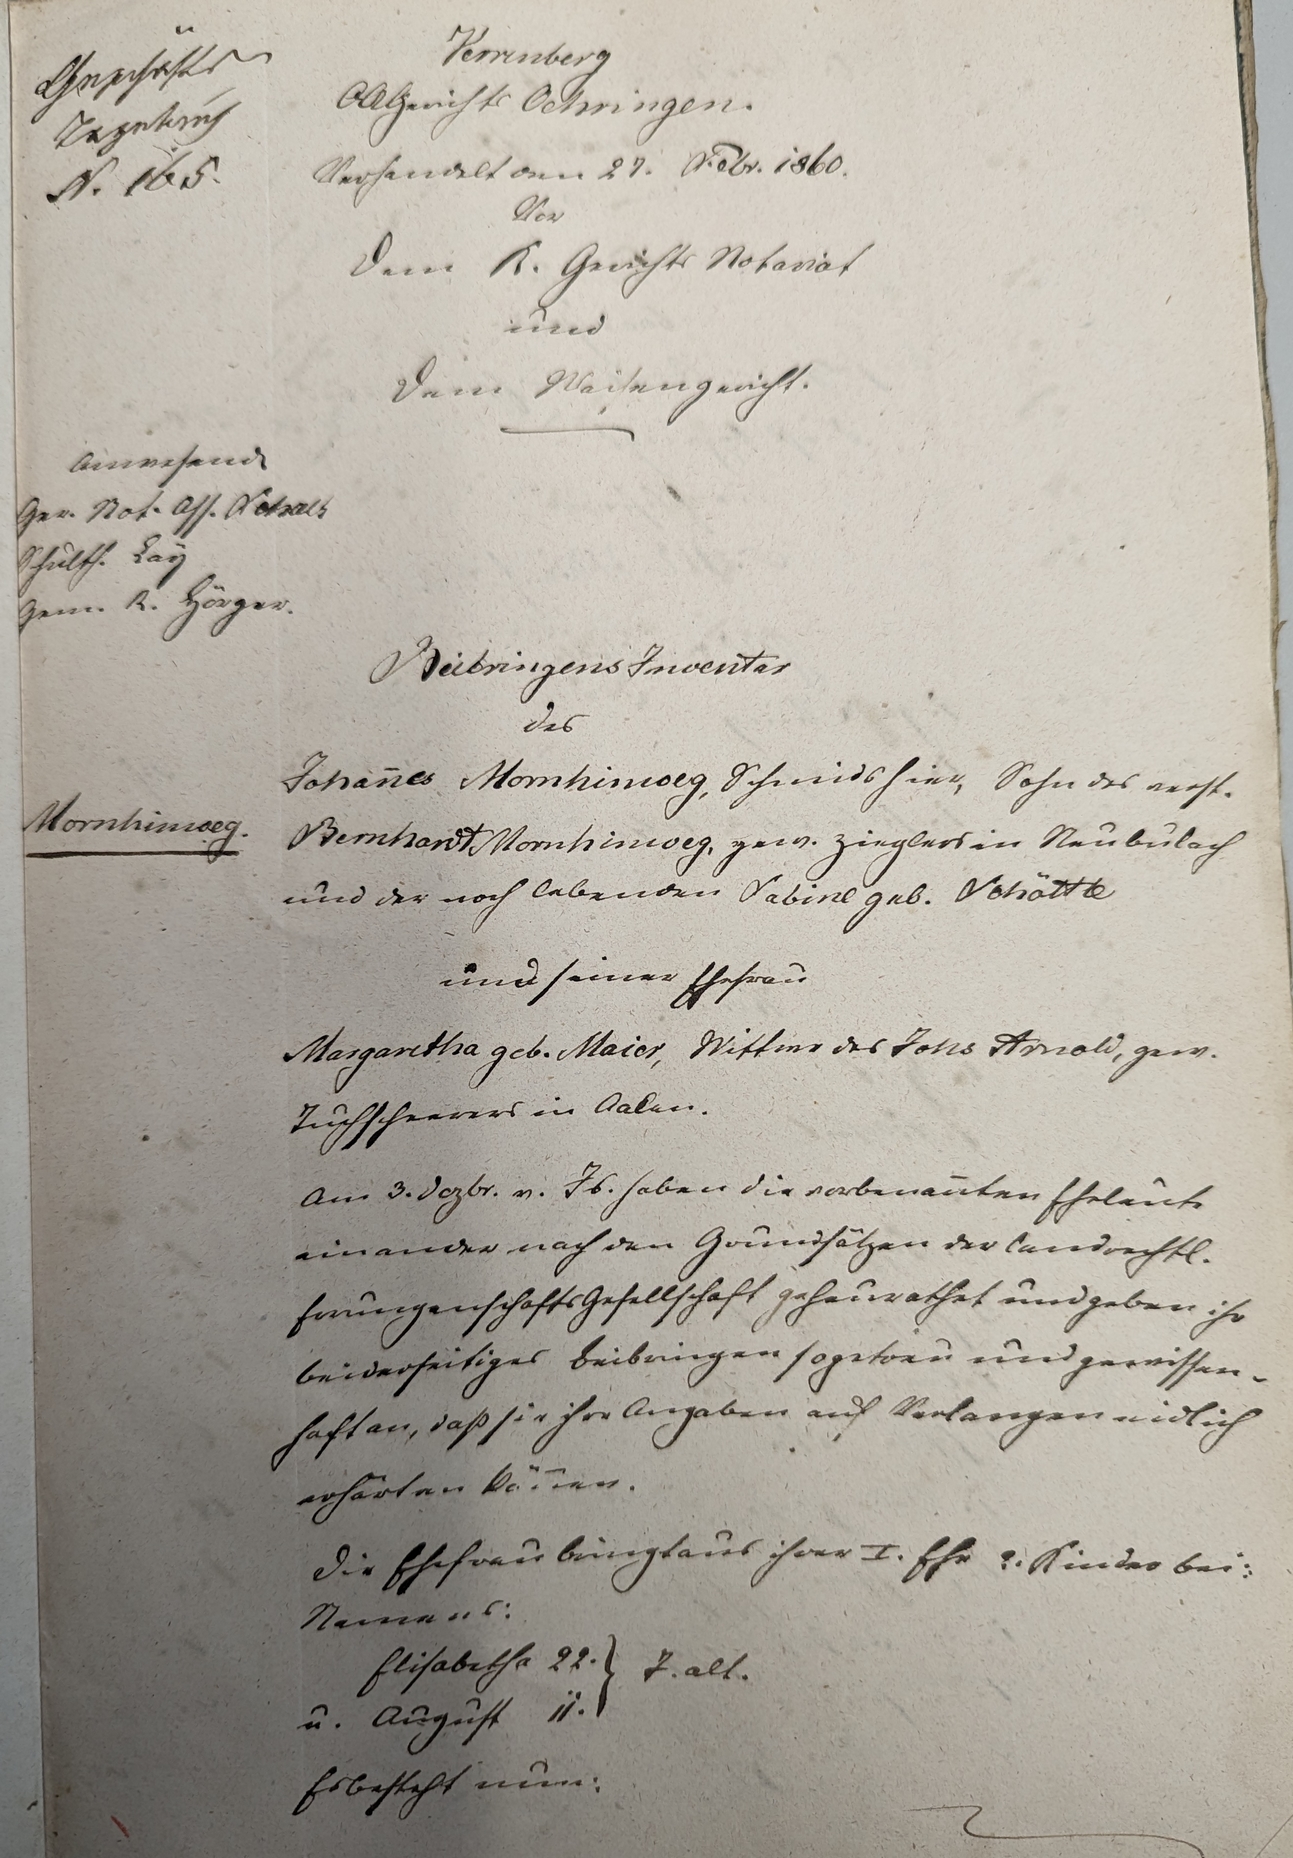 Geschäfts
Tagebuch
N. 165.
Verrenberg
OAGerichts Oehringen.
Verhandelt den 27. Febr. 1860.
Vor
dem K. Gerichts Notariat
und
dem Waisengericht.
Anwesend
Ger. Not. Ass.
Schulth. Lay
Gem. R. Hörger.
Beibringens Inventar
des
Johan̄es Mornhinweg, Schmids hier, Sohn des verst.
Mornhinweg.
Bernhardt Mornhinweg, gew. Zieglers in Neubulach
und der noch lebenden Sabine geb. Schöttle
und seiner Ehefrau
Margaretha geb. Maier, Wittwe des Johs Arnold, gew.
Tuchscheerers in Aalen.
Am 3. Dezbr. v. Js. haben die vorbenan̄ten Eheleute
einander nach den Grundsätzen der landrechtl.
Errungenschafts Gesellschaft geheurathet und geben ihr
beiderseitiges Beibringen so getreu und gewissen-
haft an, daß sie ihre Angaben auf Verlangen eidlich
erhärten kön̄en.
Die Ehefrau bringt aus ihrer I. Ehe 2. Kinder bei:
Namens:
Elisabetha 22. } J. alt.
u. August 11.
Es besteht nun: